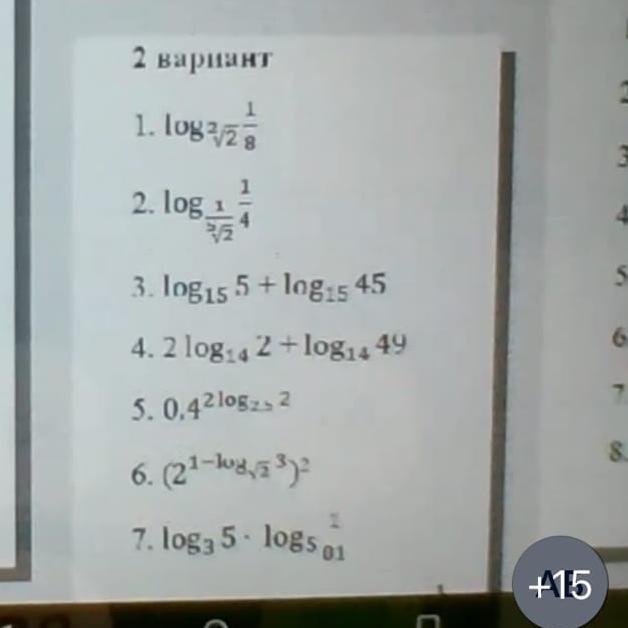 2 вариант
1. log ²√2 1/8
2. log 1/⁵√2 1/4
3. log₁₅ 5 + log₁₅ 45
4. 2 log₁₄ 2 + log₁₄ 49
5. 0,4^(2 log₂,₅ 2)
6. (2^(1−log√2 3))²
7. log₃ 5 · log₅ 1/81
2
3
4
5
6
7.
8.
+15